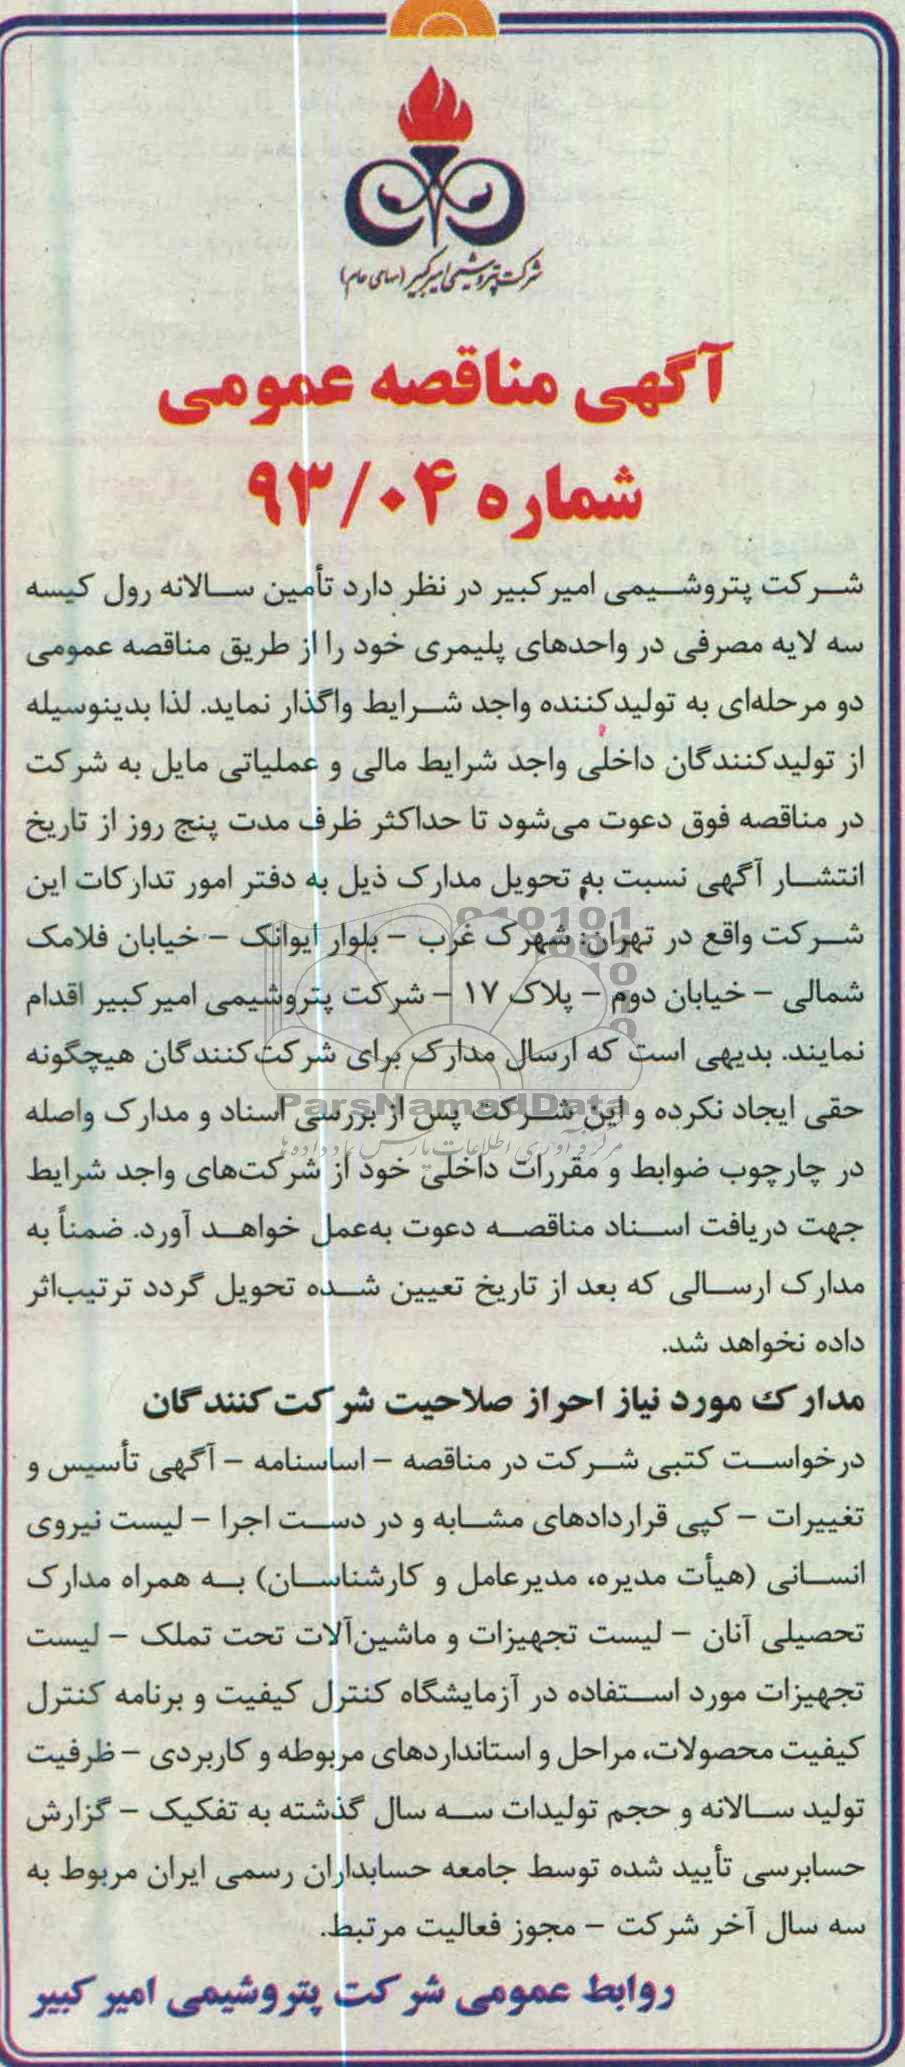 شرکت پتروشیمی امیرکبیر (سهامی عام)
آگهی مناقصه عمومی
شماره ۹۳/۰۴
شرکت پتروشیمی امیرکبیر در نظر دارد تأمین سالانه رول کیسه
سه لایه مصرفی در واحدهای پلیمری خود را از طریق مناقصه عمومی
دو مرحله‌ای به تولیدکننده واجد شرایط واگذار نماید. لذا بدینوسیله
از تولیدکنندگان داخلی واجد شرایط مالی و عملیاتی مایل به شرکت
در مناقصه فوق دعوت می‌شود تا حداکثر ظرف مدت پنج روز از تاریخ
انتشار آگهی نسبت به تحویل مدارک ذیل به دفتر امور تدارکات این
شرکت واقع در تهران: شهرک غرب – بلوار ایوانک – خیابان فلامک
شمالی – خیابان دوم – پلاک ۱۷ – شرکت پتروشیمی امیرکبیر اقدام
نمایند. بدیهی است که ارسال مدارک برای شرکت‌کنندگان هیچگونه
حقی ایجاد نکرده و این شرکت پس از بررسی اسناد و مدارک واصله
ParsNamadData
مرکز فرآوری اطلاعات پارس نماد داده‌ها
در چارچوب ضوابط و مقررات داخلی خود از شرکت‌های واجد شرایط
جهت دریافت اسناد مناقصه دعوت به‌عمل خواهد آورد. ضمناً به
مدارک ارسالی که بعد از تاریخ تعیین شده تحویل گردد ترتیب‌اثر
داده نخواهد شد.
مدارک مورد نیاز احراز صلاحیت شرکت کنندگان
درخواست کتبی شرکت در مناقصه – اساسنامه – آگهی تأسیس و
تغییرات – کپی قراردادهای مشابه و در دست اجرا – لیست نیروی
انسانی (هیأت مدیره، مدیرعامل و کارشناسان) به همراه مدارک
تحصیلی آنان – لیست تجهیزات و ماشین‌آلات تحت تملک – لیست
تجهیزات مورد استفاده در آزمایشگاه کنترل کیفیت و برنامه کنترل
کیفیت محصولات، مراحل و استانداردهای مربوطه و کاربردی – ظرفیت
تولید سالانه و حجم تولیدات سه سال گذشته به تفکیک – گزارش
حسابرسی تأیید شده توسط جامعه حسابداران رسمی ایران مربوط به
سه سال آخر شرکت – مجوز فعالیت مرتبط.
روابط عمومی شرکت پتروشیمی امیر کبیر